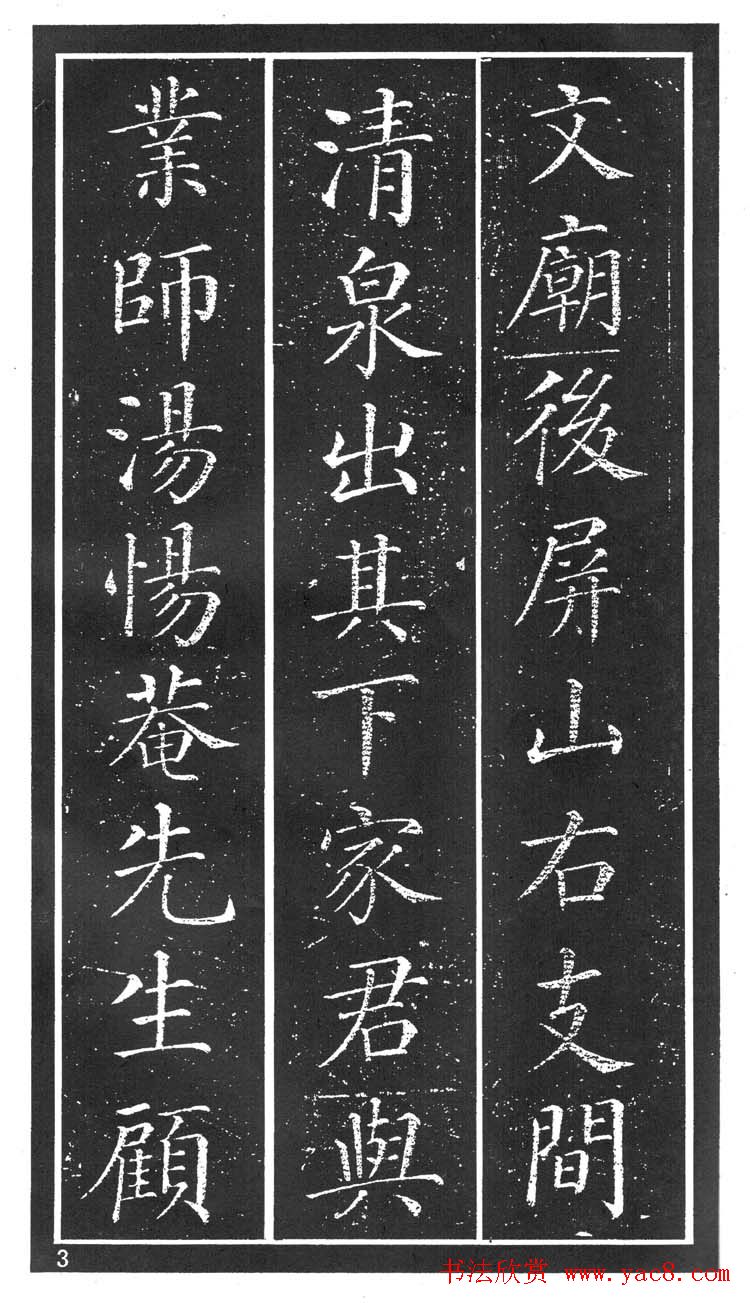 文廟後屏山右支間
清泉出其下家君與
業師湯惕菴先生顧
3
书法欣赏 www.yac8.com